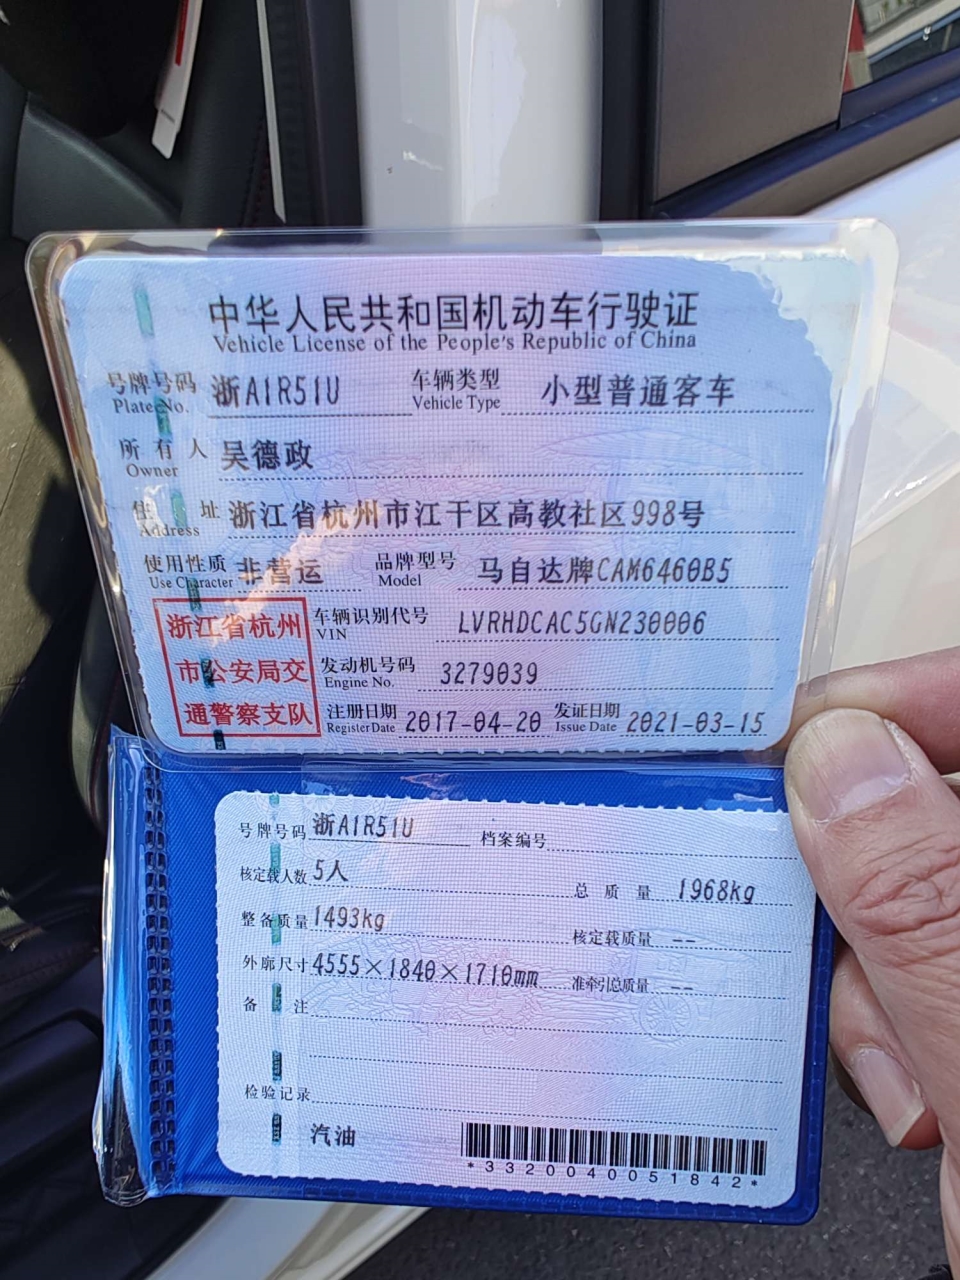 中华人民共和国机动车行驶证
Vehicle License of the People's Republic of China
号牌号码 浙A1R51U 车辆类型 小型普通客车
Plate No. Vehicle Type
所有人 吴德政
Owner
住址 浙江省杭州市江干区高教社区998号
Address
使用性质 非营运 品牌型号 马自达牌CAM6460B5
Use Character Model
浙江省杭州
市公安局交
通警察支队
车辆识别代号 LVRHDCAC5GN230006
VIN
发动机号码 3279039
Engine No.
注册日期 2017-04-20 发证日期 2021-03-15
Register Date Issue Date
号牌号码 浙A1R51U 档案编号
核定载人数 5人 总质量 1968kg
整备质量 1493kg 核定载质量 --
外廓尺寸 4555×1840×1710mm 准牵引总质量 --
备注
检验记录
汽油
*3320040051842*